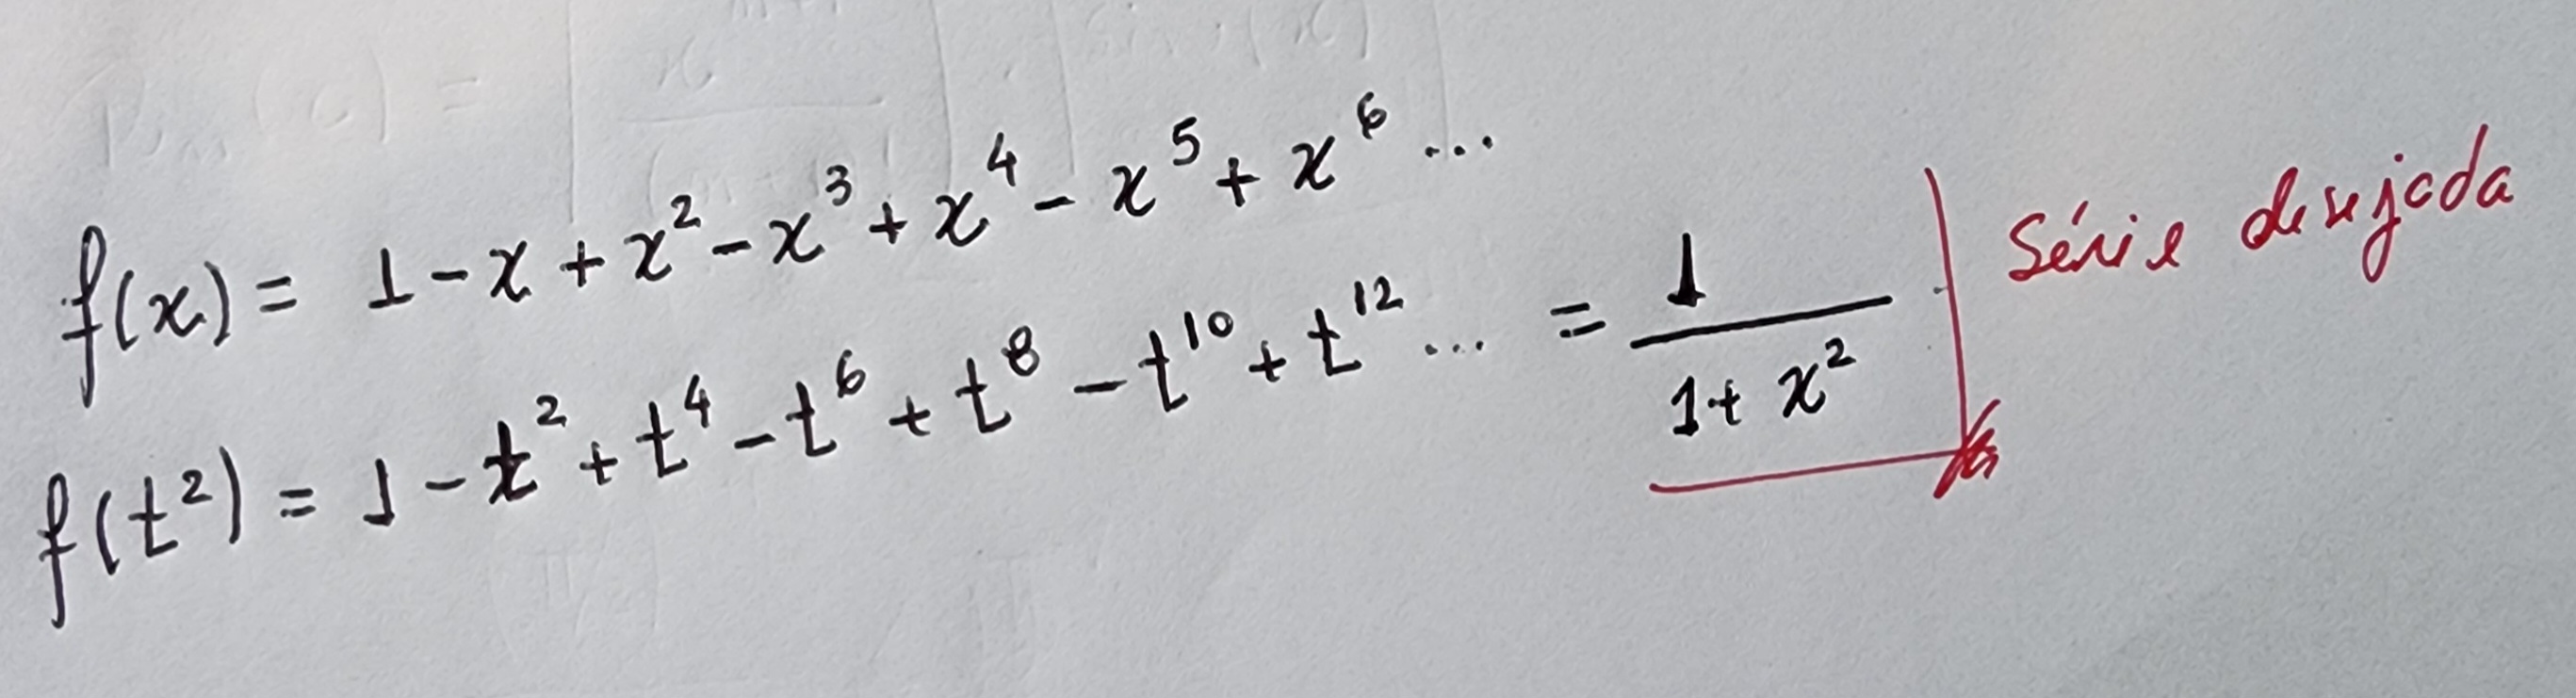 f(x) = 1 - x + x² - x³ + x⁴ - x⁵ + x⁶ ...
f(t²) = 1 - t² + t⁴ - t⁶ + t⁸ - t¹⁰ + t¹² ... = 1/(1 + x²)
Série desejada